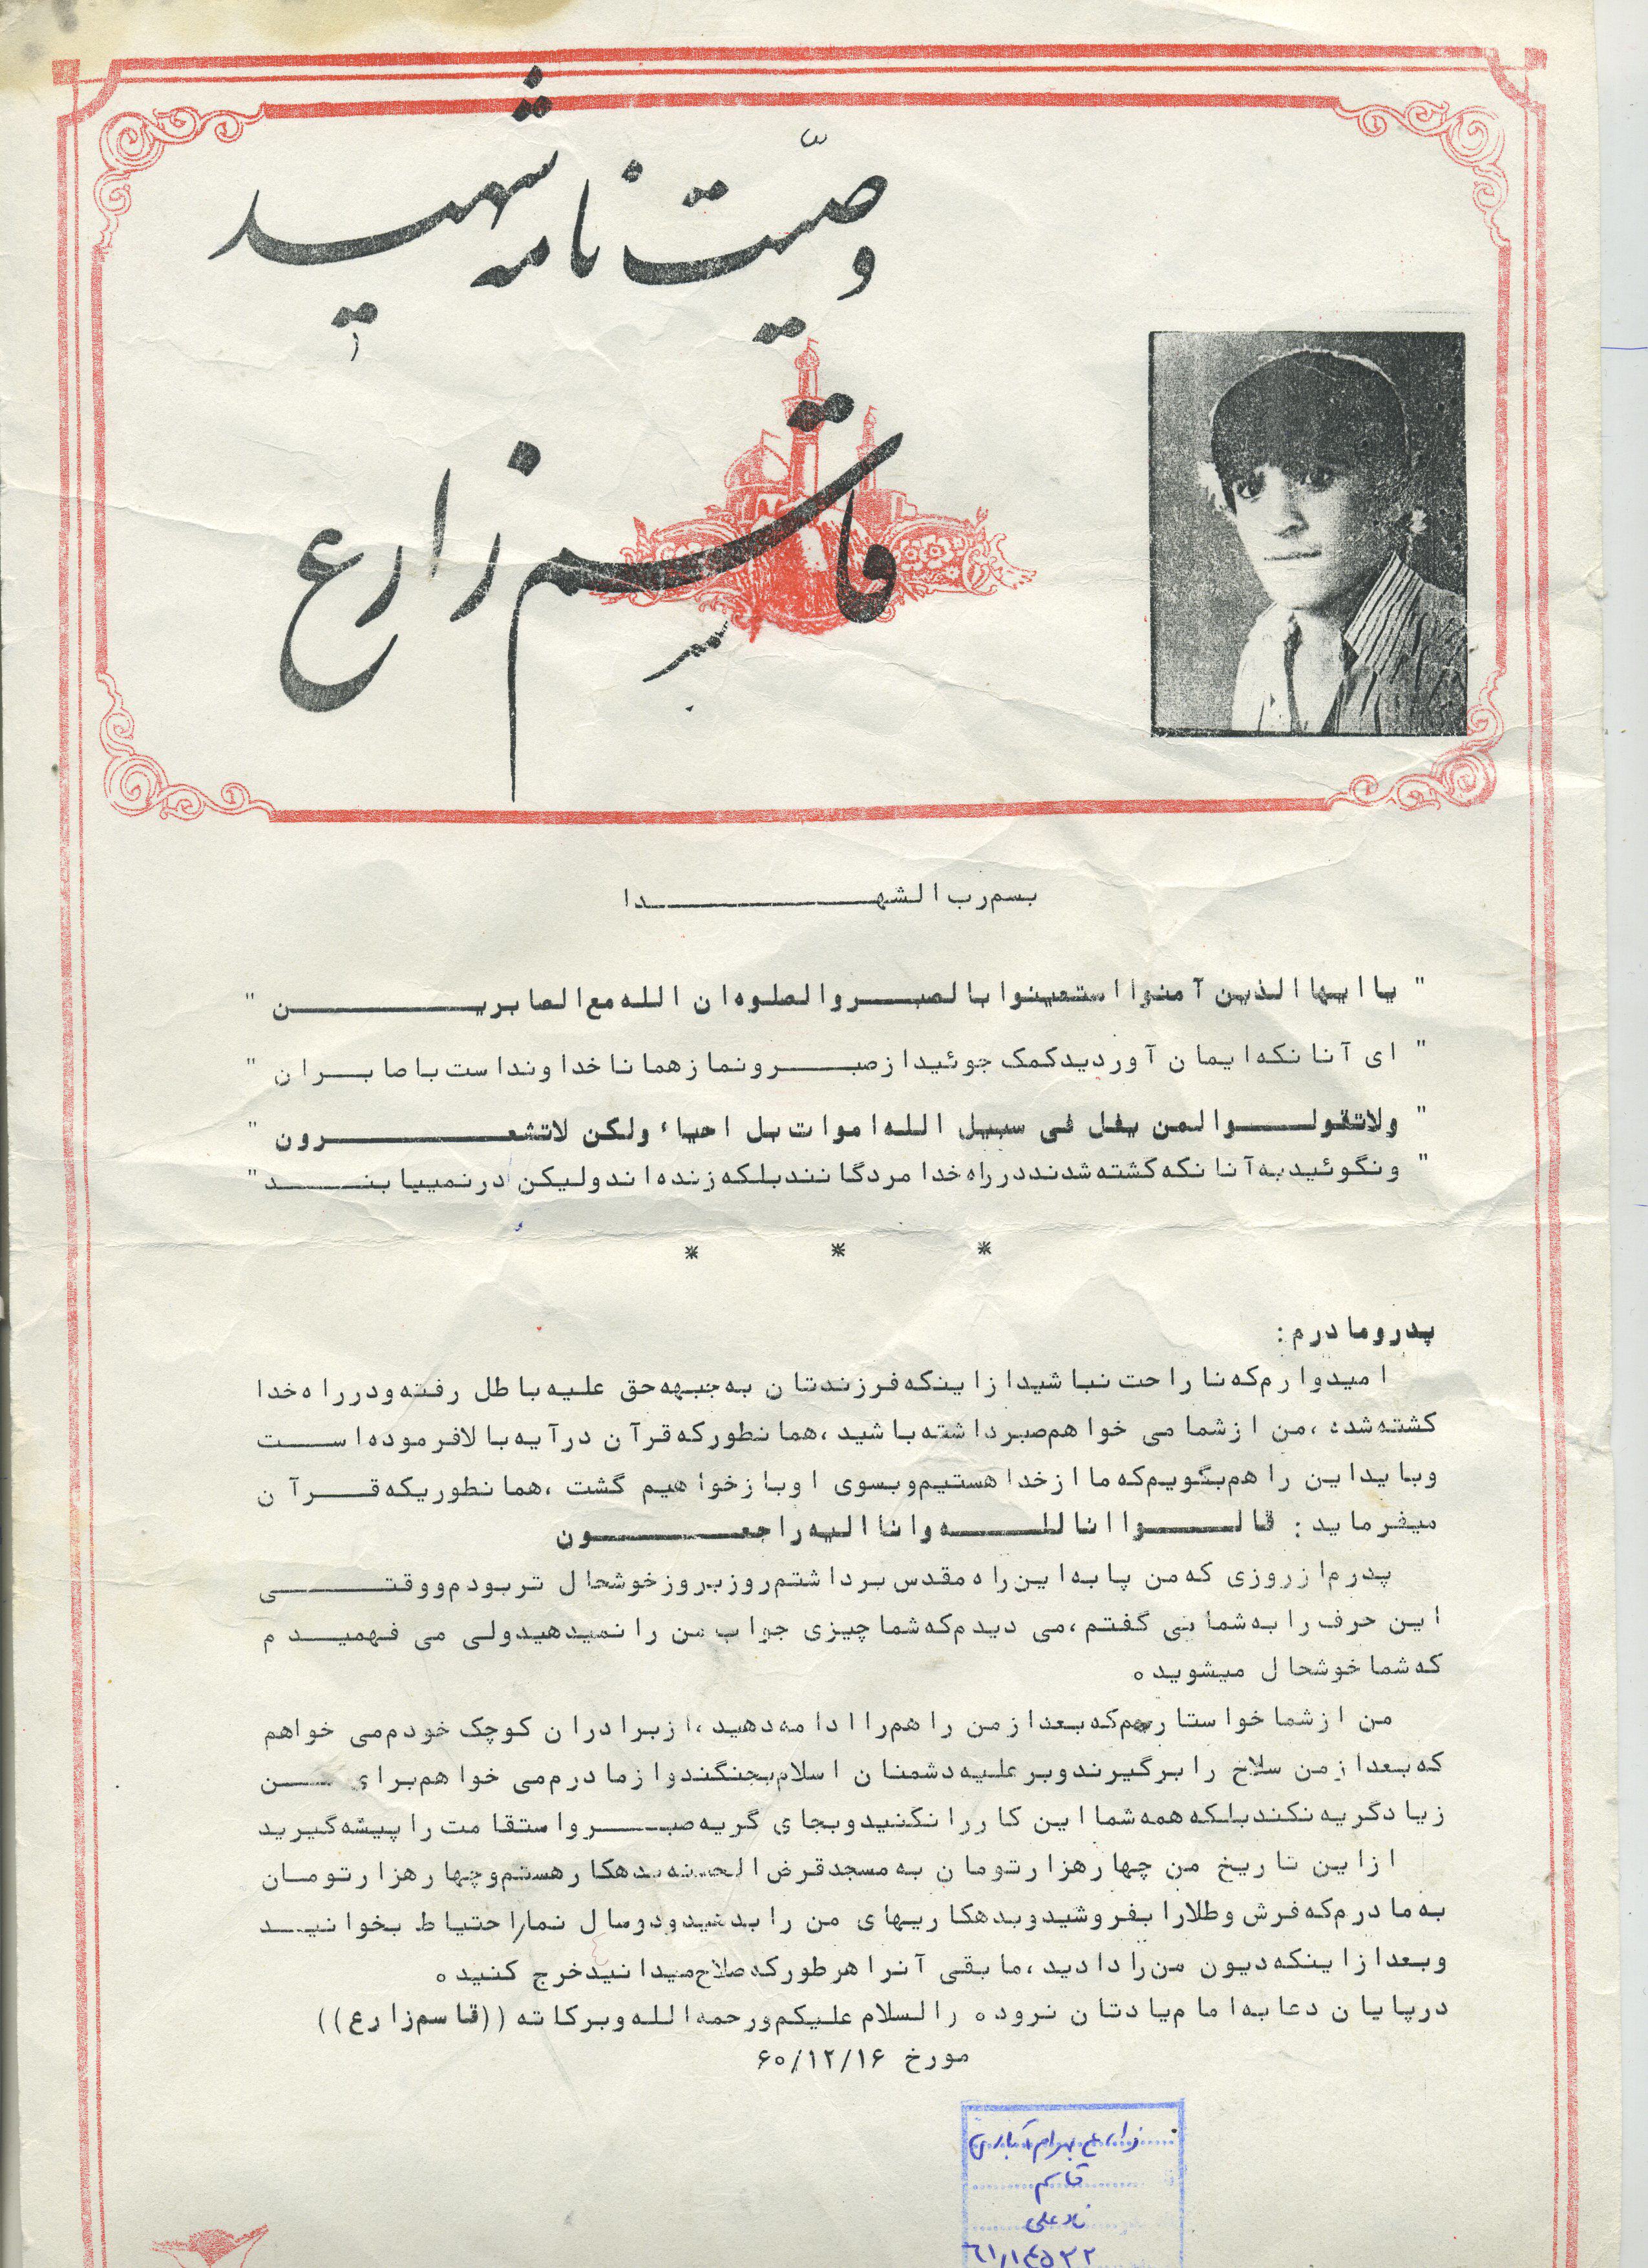 وصیّت نامه شهید
قاسم زارع
بسم رب الشهدا
" یا ایها الذین آمنوا استعینوا بالصبر والصلوه ان الله مع الصابرین "
" ای آنانکه ایمان آوردید کمک جوئید از صبر و نماز همانا خداوند است با صابران "
" ولاتقولوا لمن یقتل فی سبیل الله اموات بل احیاء ولکن لاتشعرون "
" ونگوئید به آنانکه کشته شدند در راه خدا مردگانند بلکه زنده اند ولیکن در نمییابند "
* * *
پدر و مادرم :
امیدوارم که ناراحت نباشید از اینکه فرزندتان به جبهه حق علیه باطل رفته و در راه خدا
کشته شده ، من از شما می خواهم صبر داشته باشید ، همانطور که قرآن در آیه بالا فرموده است
و باید این را هم بگویم که ما از خدا هستیم و بسوی او باز خواهیم گشت ، همانطوریکه قرآن
میفرماید : قالوا انا لله وانا الیه راجعون
پدرم از روزی که من پا به این راه مقدس برداشتم روز بروز خوشحال تر بودم و وقتی
این حرف را به شما می گفتم ، می دیدم که شما چیزی جواب من را نمیدهید ولی می فهمیدم
که شما خوشحال میشوید ه
من از شما خواستارم که بعد از من راهم را ادامه دهید ، از برادران کوچک خودم می خواهم
که بعد از من سلاح را برگیرند و بر علیه دشمنان اسلام بجنگند و از مادرم می خواهم برای من
زیاد گریه نکند بلکه همه شما این کار را نکنید و بجای گریه صبر و استقامت را پیشه گیرید
از این تاریخ من چهار هزار تومان به مسجد قرض الحسنه بدهکار هستم و چهار هزار تومان
به مادرم که فرش و طلا را بفروشید و بدهکاریهای من را بدهید و دو سال نماز احتیاط بخوانید
و بعد از اینکه دیون من را دادید ، مابقی آنرا هر طور که صلاح میدانید خرج کنید ه
در پایان دعا به امام یادتان نرود ه والسلام علیکم ورحمه الله وبرکاته ((قاسم زارع))
مورخ ۶۰/۱۲/۱۶
قاسم